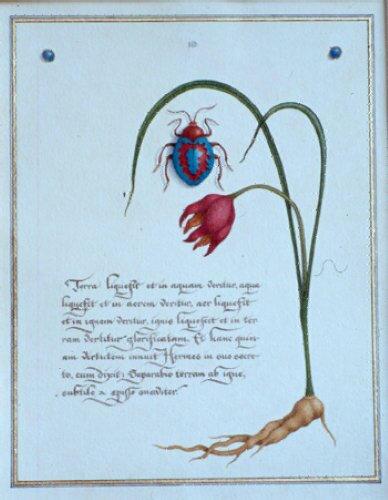 Terra liquefit et in aquam vertitur, aqua
liquefit et in aerem vertitur, aer liquefit
et in ignem vertitur, ignis liquefscit et in ter
ram vertitur glorificatam. Et hanc quon
am Hermes in suo secre-
to, cum dixit: Separabis terram ab igne,
subtile a spisso suaviter.